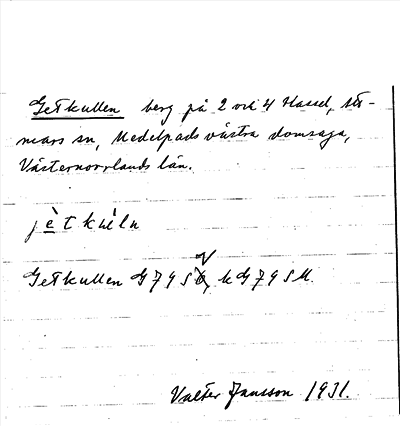 Getkullen berg på 2 och 4 Hassel, Stö-
mars sn, Medelpads västra domsaga,
Västernorrlands län.
jètkùln
Getkullen G 7 9 S V, k G 7 9 S M.
Valter Jansson 1931.